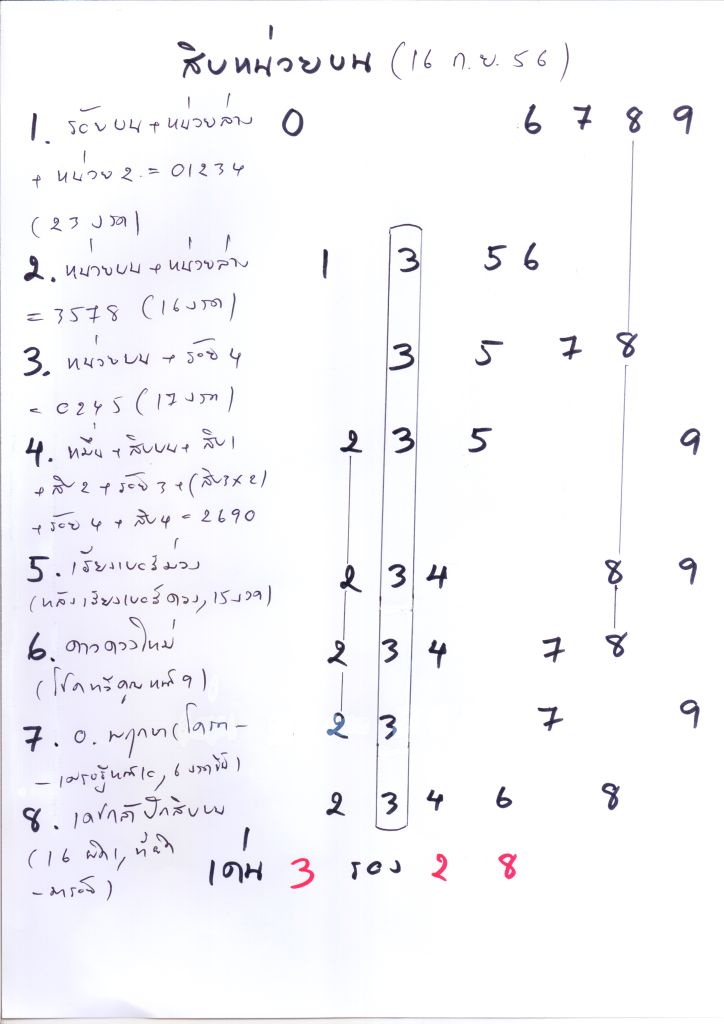 สิบหน่วยบน (16 ก.ย. 56)
1. ร้อยบน + หน่วยล่าง 0 6 7 8 9
+ หน่วย 2 = 01234
(23 งวด)
2. หน่วยบน + หน่วยล่าง 1 3 5 6
= 3578 (16 งวด)
3. หน่วยบน + ร้อย 4 3 5 7 8
= 0245 (17 งวด)
4. หมื่น + สิบบน + สิบ 1 2 3 5 9
+ สิบ 2 + ร้อย 3 + (สิบ 3 x 2)
+ ร้อย 4 + สิบ 4 = 2690
5. เรียงเบอร์ม่วง 2 3 4 8 9
(หลังเรียงเบอร์ดวง, 15 งวด)
6. ดาวดวงใหม่ 2 3 4 7 8
(โชคทวีคูณ
7. อ. พฤกษา 2 3 7 9
8. ปักสิบบน 2 3 4 6 8
(16
เด่น 3 รอง 2 8